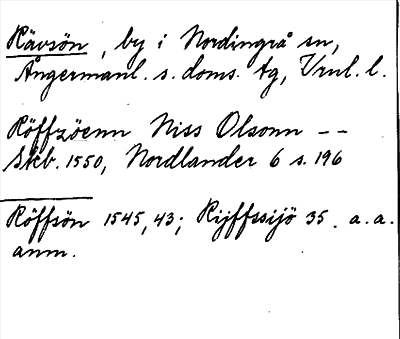 Rävsön, by i Nordingrå sn,
Ångermanl. s. doms. tg, Vrnl. l.
Röffzöenn Niss Olsonn --
Skb. 1550, Nordlander 6 s. 196
Röffsön 1545, 43; Rijffssijö 35. a. a.
anm.